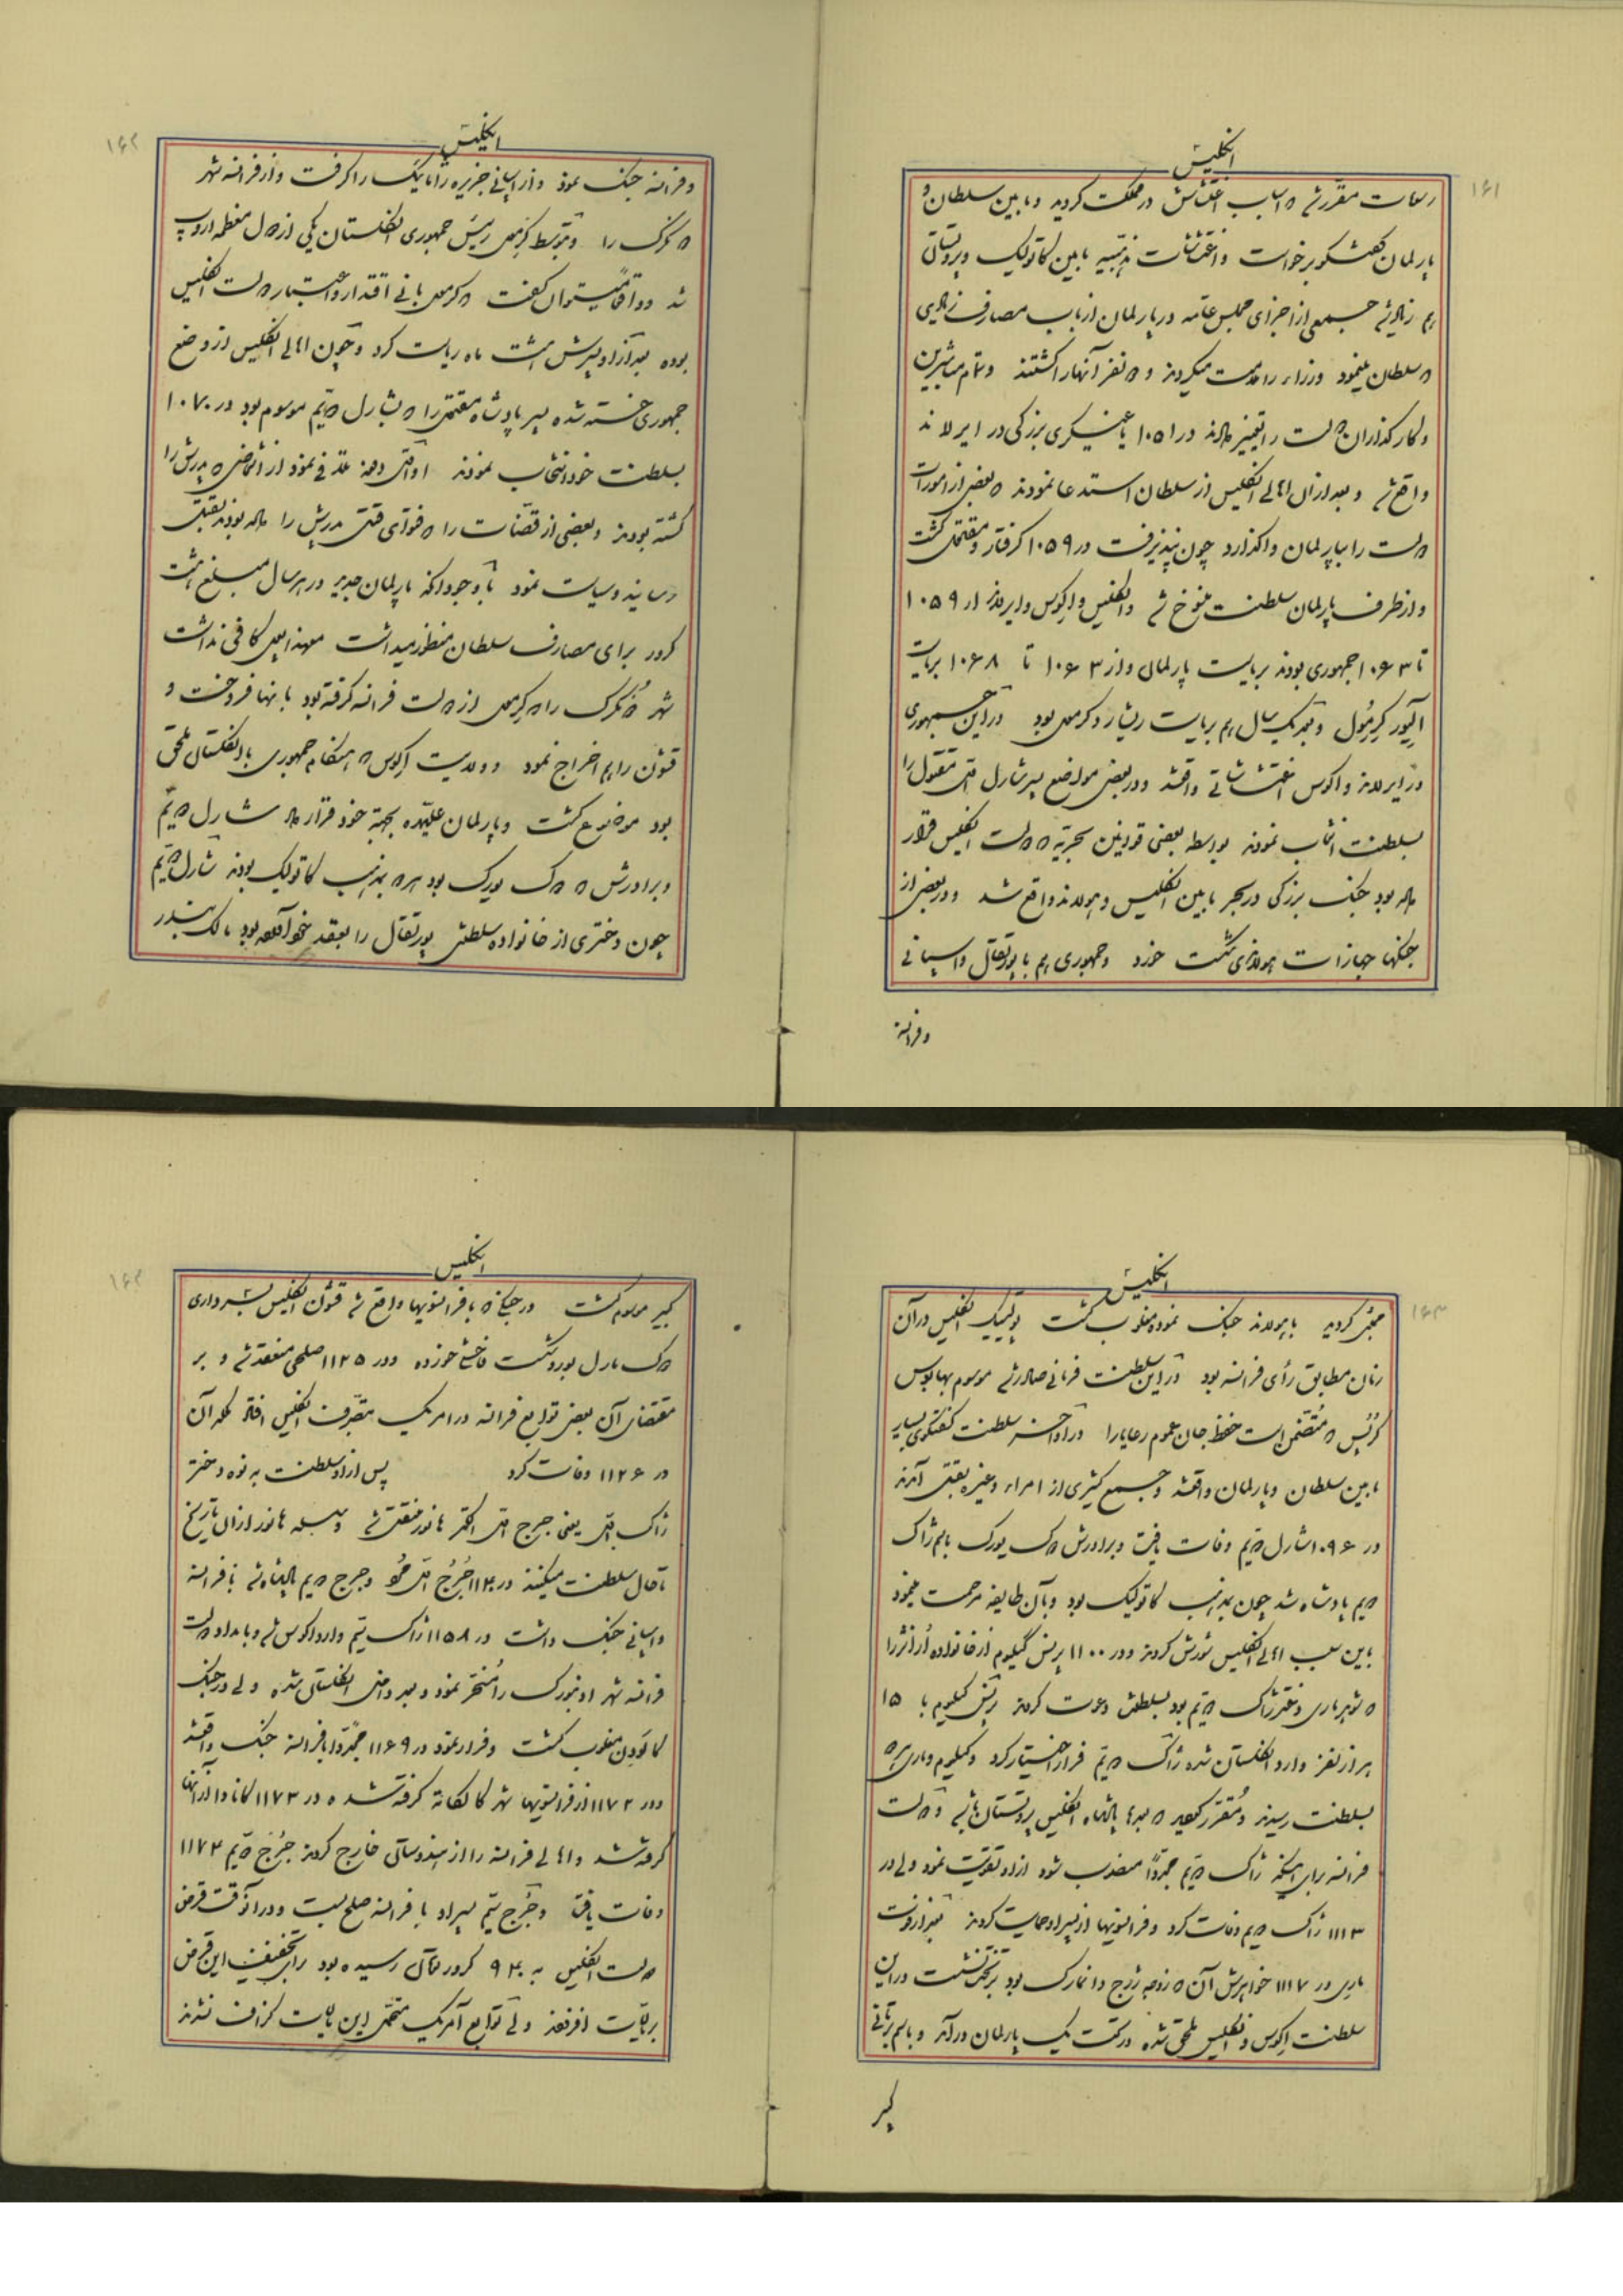 ۱۶۱
انگلیس
مقررشد اسباب اغتشاش در مملکت گردید و مابین سلطان و
پارلمان گفتگو برخواست و اغتشاشات مذهبیه مابین کاتولیک و پروتستانی
هم زیاد شد جمعی از اجزای مجلس عامه در پارلمان از باب مصارف زیادی
که سلطان مینمود وزراء را مذمت میکردند و نفر آنها را کشتند و تمام مباشرین
و کارگذاران دولت را تغییر دادند در ۱۰۵۱ بزرگی در ایرلاند
واقع شد و بعد از آن اهالی انگلیس از سلطان استدعا نمودند که بعضی از امورات
دولت را بپارلمان واگذارد چون نپذیرفت در ۱۰۵۹ گرفتار و مقتول گشت
و از طرف پارلمان سلطنت منسوخ شد و انگلیس و اکوس و ایرلاند از ۱۰۵۹
تا ۱۰۶۳ جمهوری بودند بریاست پارلمان و از ۱۰۶۳ تا ۱۰۶۸ بریاست
الیور کرمول و بعد یک سال هم بریاست ریشارد کرمول بود در این جمهوری
در ایرلاند و اکوس اغتشاشاتی واقع شد و در بعضی مواضع پسر شارل اول مقتول را
بسلطنت انتخاب نمودند بواسطه بعضی قوانین بحریه که دولت انگلیس قرار
داده بود جنگ بزرگی در بحر مابین انگلیس و هولاند واقع شد و در بعضی از
جنگها جهازات هولاندی شکست خورد و جمهوری هم با پورتقال و اسپانی
و فرانسه
۱۶۲
انگلیس
و فرانسه جنگ نمود و از اسپانی جزیره ژامائیک را گرفت و از فرانسه شهر
دنکرک را و بتوسط کرمول رئیس جمهوری انگلستان یکی از دول معظمه اروپ
شد و واقعاً میتوان گفت که کرمول بانی اقتدار و اعتبار دولت انگلیس
بوده بعد از او پسرش هشت ماه ریاست کرد و چون اهالی انگلیس از وضع
جمهوری خسته شده پسر پادشاه مقتول را که بشارل دویم موسوم بود در ۱۰۷۰
بسلطنت خود انتخاب نمودند نمود از اشخاصی که پدرش را
کشته بودند و بعضی از قضات را که فتوای قتل پدرش را داده بودند بقتل
رسانید و سیاست نمود با وجود آنکه پارلمان جدید در هر سال مبلغ هشت
کرور برای مصارف سلطان منظور میداشت معهذا پول کافی نداشت
شهر دنکرک را که کرمول از دولت فرانسه گرفته بود بآنها فروخت و
قشون را هم اخراج نمود و ولایت اکوس که هنگام جمهوری با انگلستان ملحق
بود موضوع گشت و پارلمان علیحده بجهة خود قرار داد شارل دویم
و برادرش که دوک یورک بود هر دو بمذهب کاتولیک بودند شارل دویم
چون دختری از خانواده سلطنتی پورتقال را بعقد خود در آورده بود مالک بندر
۱۶۳
انگلیس
بمبئی گردید با هولاند جنگ نموده مغلوب گشت پولتیک انگلیس در آن
زمان مطابق رأی فرانسه بود در این سلطنت فرمانی صادر شد موسوم بهابیوس
کرپس که متضمن است حفظ جان عموم رعایا را در اواخر سلطنت گفتگوی بسیار
مابین سلطان و پارلمان واقع شد و جمع کثیری از امراء و غیره بقتل آمدند
در ۱۰۹۶ شارل دویم وفات یافت و برادرش دوک یورک باسم ژاک
دویم پادشاه شد چون بمذهب کاتولیک بود و بآن طایفه مرحمت مینمود
باین سبب اهالی انگلیس شورش کردند و در ۱۱۰۰ پرنس گیلیوم از خانواده اُرانژ را
که شوهر ماری دختر ژاک دویم بود بسلطنت دعوت کردند پرنس گیلیوم با ۱۵
هزار نفر وارد انگلستان شده ژاک دویم فرار اختیار کرد و گیلیوم و ماری هر دو
بسلطنت رسیدند و مقرر گردید که بعدها پادشاه انگلیس پروتستان باشد و دولت
فرانسه برای اینکه ژاک دویم مجدداً منصوب شود از او تقویت نمود ولی در
۱۱۱۳ ژاک دویم وفات کرد و فرانسویها از پسر او حمایت کردند بعد از فوت
ماری در ۱۱۱۷ خواهرش آن که زوجه ژرج دانمارک بود بر تخت نشست در این
سلطنت اکوس و انگلیس ملحق شده در تحت یک پارلمان درآمد و باسم برتانی
کبیر
۱۶۴
انگلیس
کبیر موسوم گشت در جنگی که با فرانسویها واقع شد قشون انگلیس بسرداری
دوک مارل بورو شکست فاحشی خورده و در ۱۱۲۵ صلحی منعقد شد و بر
مقتضای آن بعضی توابع فرانسه در امریک بتصرف انگلیس افتاد ملکه آن
در ۱۱۲۶ وفات کرد پس از او سلطنت به نوه دختر
ژاک اول یعنی جرج اول الکتر هانور منتقل شد و سلسله هانور از آن تاریخ
تا حال سلطنت میکنند در ۱۱۴۰ جُرج اول فوت و جرج دویم پادشاه شد با فرانسه
و اسپانی جنگ داشت در ۱۱۵۸ ژاک سیم وارد اکوس شد و با امداد دولت
فرانسه شهر ادنبورک را مسخر نمود و بعد داخل انگلستان شده ولی در جنگ
کولودن مغلوب گشت و فرار نمود در ۱۱۶۹ مجدداً با فرانسه جنگ واقع شد
و در ۱۱۷۲ از فرانسویها شهر کالکاته گرفته شد و در ۱۱۷۳ کانادا از آنها
گرفته شد و اهالی فرانسه را از هندوستان خارج کردند جُرج دویم ۱۱۷۴
وفات یافت و جُرج سیم پسر او با فرانسه صلح بست و در آنوقت قرض
دولت انگلیس به ۹۴۰ کرور تومان رسیده بود برای تخفیف این قرض
بر مالیات افزودند ولی توابع آمریک متحمل این مالیات گزاف نشدند